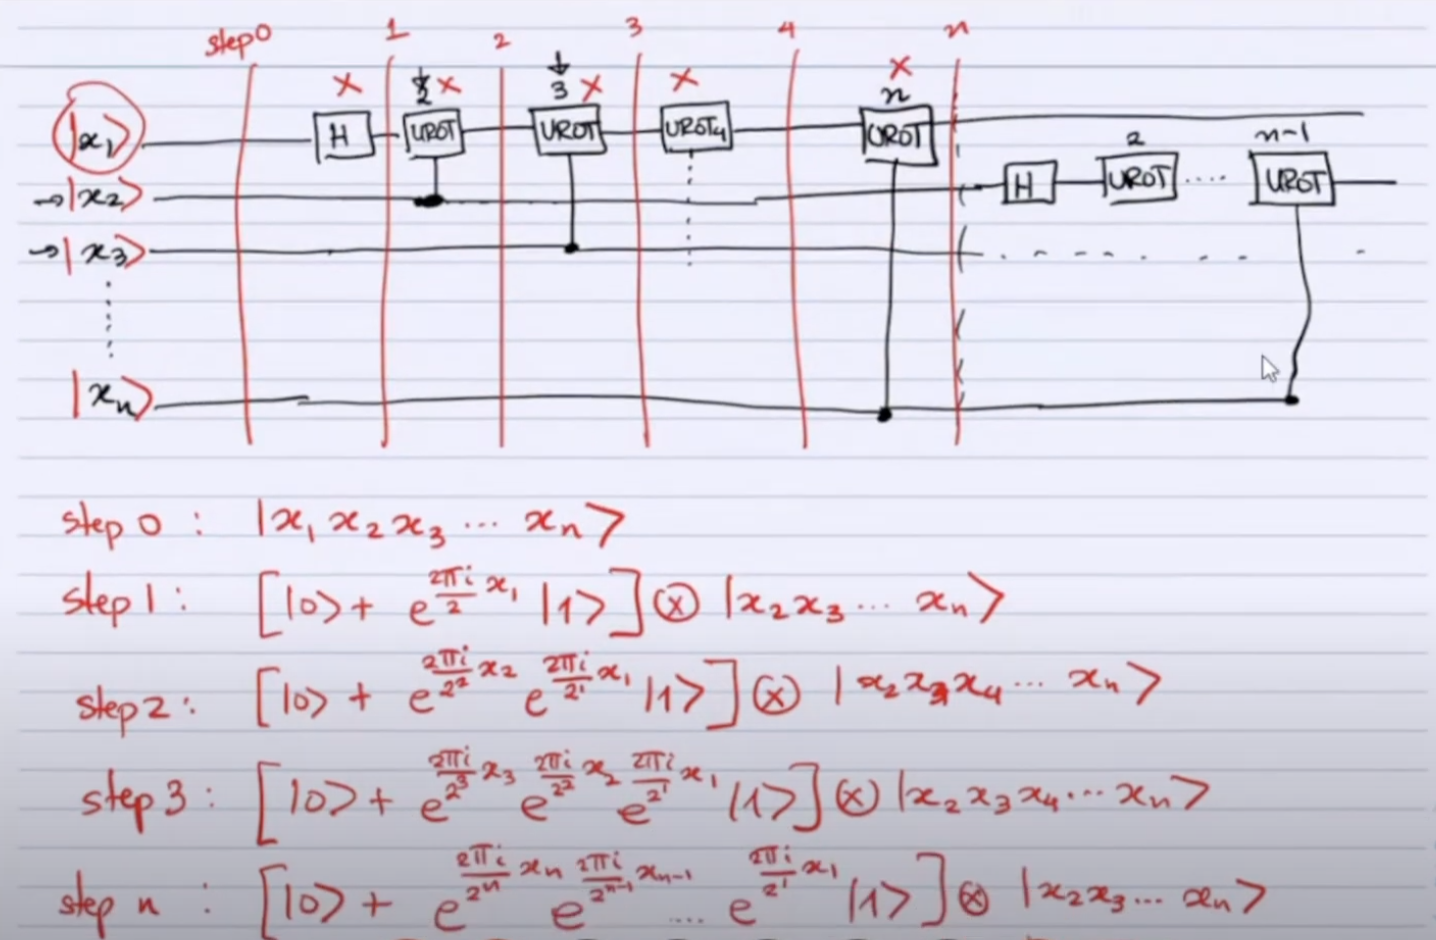 step 0 1 2 3 4 n
2 3 n
|x₁⟩ H UROT UROT UROT₄ UROT
2 n-1
|x₂⟩ H UROT .... UROT
|x₃⟩
|xₙ⟩
step 0 : |x₁ x₂ x₃ ... xₙ⟩
step 1 : [|0⟩ + e^{\frac{2πi}{2} x₁} |1⟩] ⊗ |x₂ x₃ ... xₙ⟩
step 2 : [|0⟩ + e^{\frac{2πi}{2²} x₂} e^{\frac{2πi}{2¹} x₁} |1⟩] ⊗ |x₂ x₃ x₄ ... xₙ⟩
step 3 : [|0⟩ + e^{\frac{2πi}{2³} x₃} e^{\frac{2πi}{2²} x₂} e^{\frac{2πi}{2¹} x₁} |1⟩] ⊗ |x₂ x₃ x₄ ... xₙ⟩
step n : [|0⟩ + e^{\frac{2πi}{2ⁿ} xₙ} e^{\frac{2πi}{2ⁿ⁻¹} xₙ₋₁} .... e^{\frac{2πi}{2¹} x₁} |1⟩] ⊗ |x₂ x₃ ... xₙ⟩